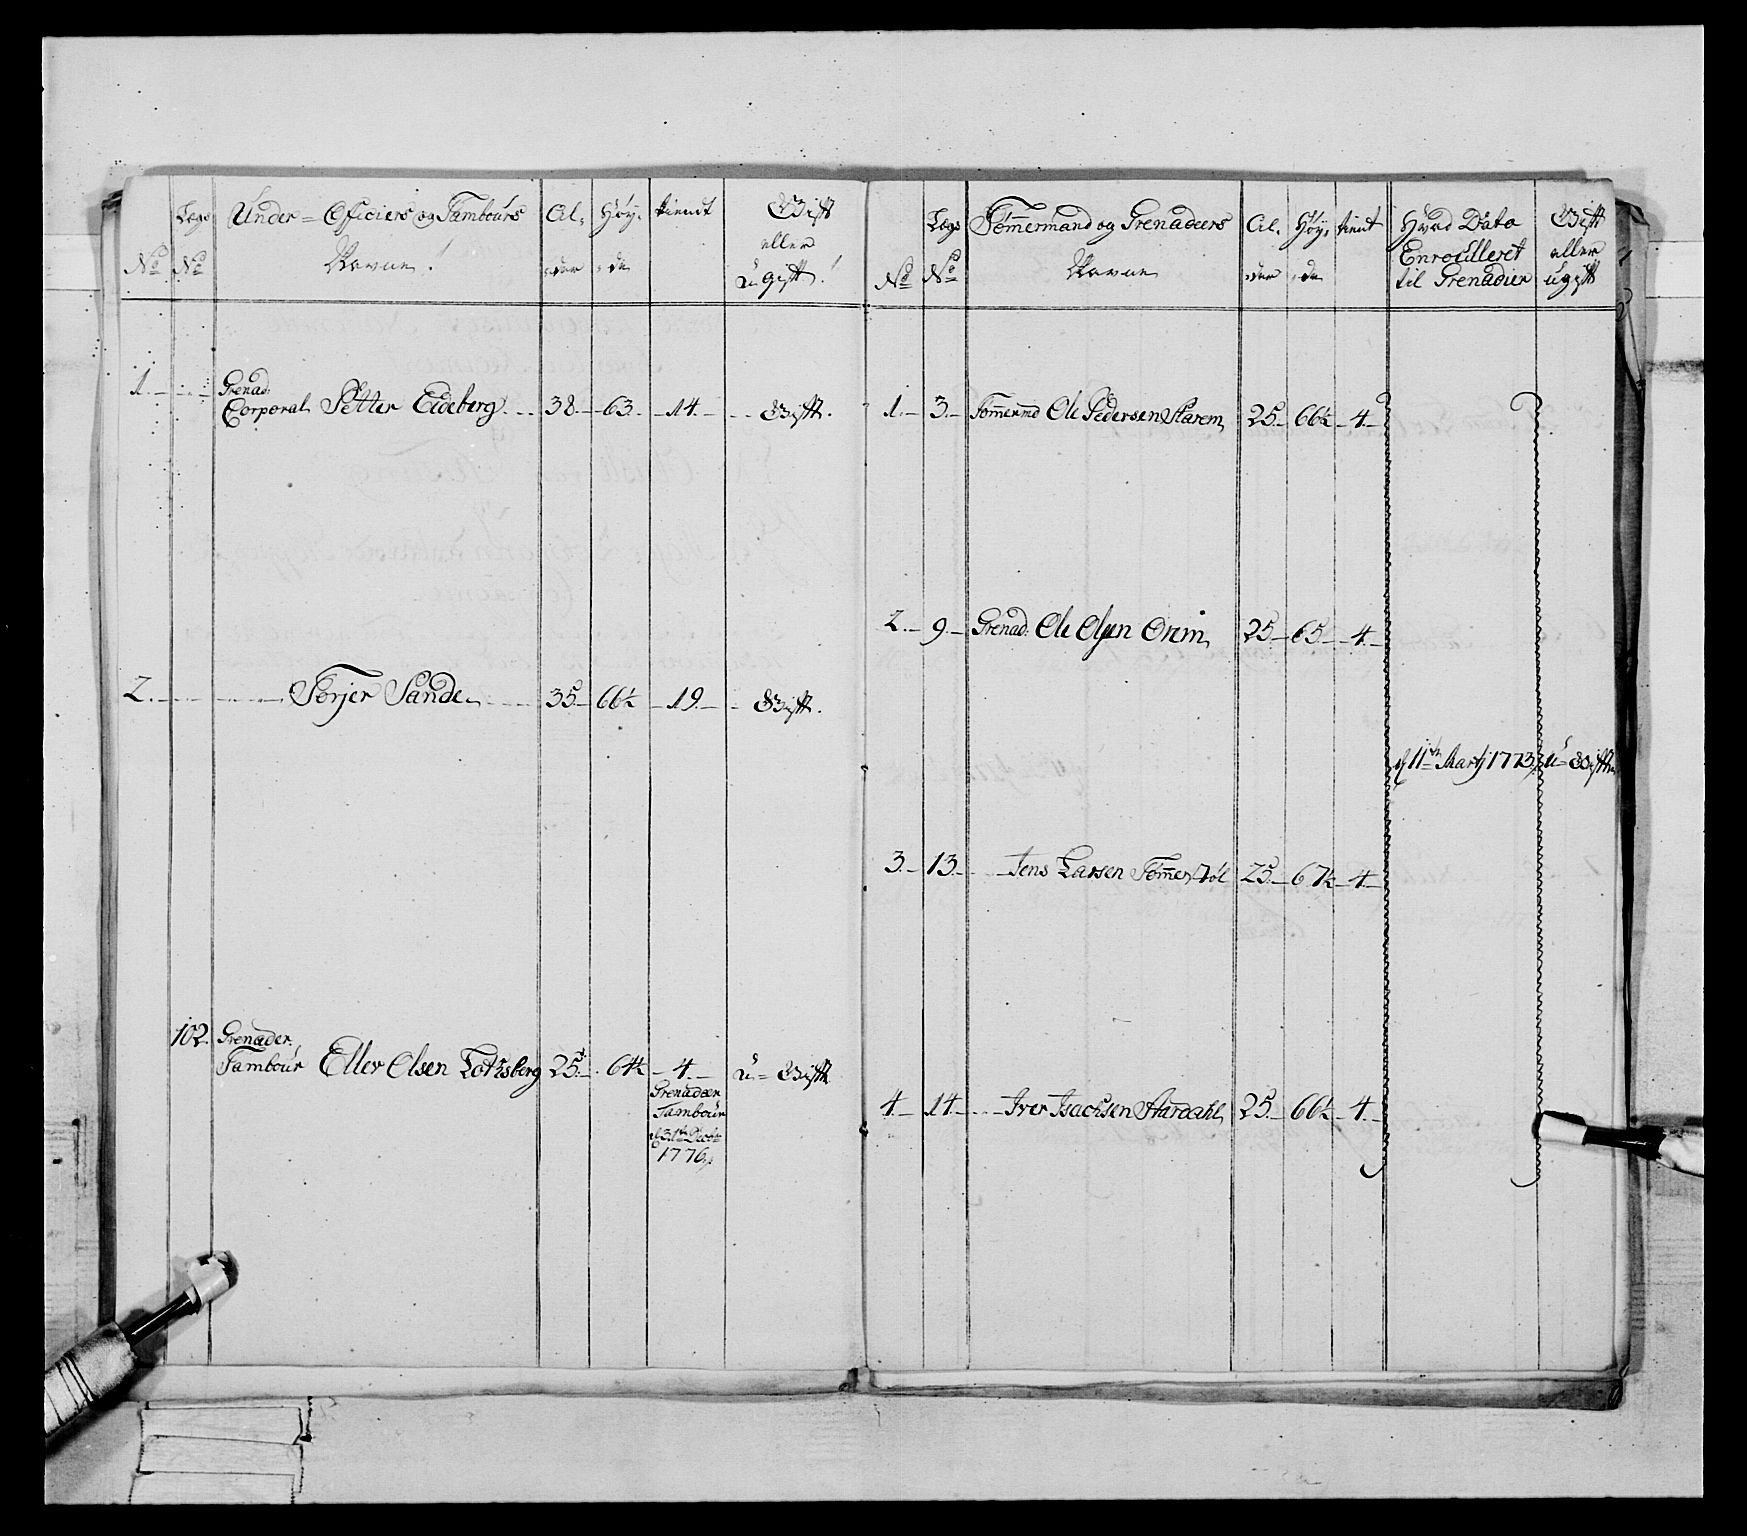 No
Lægs No
Under-Officiers og Tambours
Navne!
Al-
der
Høy-
de
tient
Gift
eller
u-Gift!
1. Grenad:
Corporal Petter Eideberg 38 63. 14. Gift.
2. Torjer Sande 35 66½ 19. Gift.
102. Grenader.
Tambour Eller Olsen 25 64½ 4. u-Gift
Grenadeer
Tambour
d 31te Decbr
1776
No
Lægs
No
Tømmermand og Grenadeers
Navne
Al-
der
Høy-
de
tient
Hvad Dato
Enroulleret
til Grenadier
Gift
eller
ugift
1. 3. Tømermd Ole Pedersen Starem 25 66½ 4.
2. 9. Grenad: Ole Olsen Orem 25 65 4.
d 11te Martj 1773. u-Gift
3. 13. Jens Larsen Tømmerstøl 25. 67½ 4.
4. 14. Iver Isachsen Aardahl 25. 66½ 4.